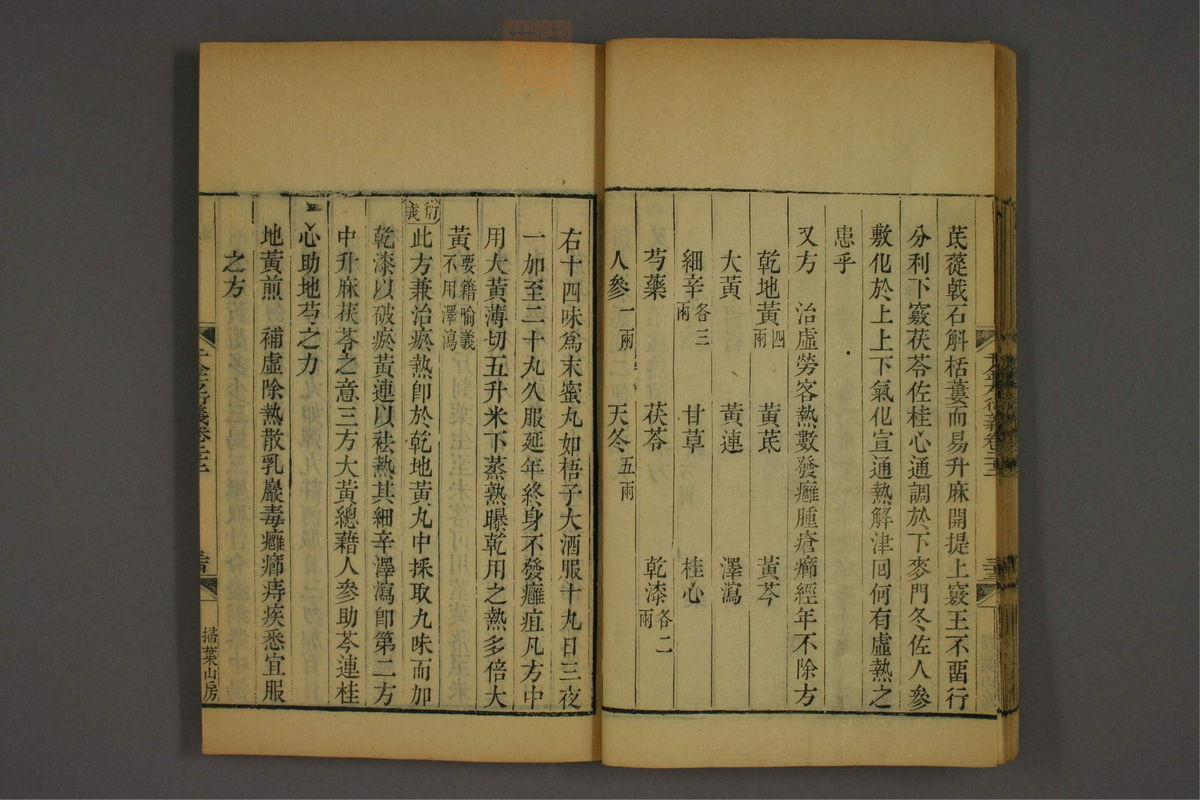 芪蓯戟石斛栝蔞而易升麻開提上竅王不畱行
分利下竅茯苓佐桂心通調於下麥門冬佐人參
敷化於上上下氣化宣通熱解津回何有虛熱之
患乎
又方　治虛勞客熱數發癰腫瘡癤經年不除方
乾地黃四兩　黃芪　黃芩
大黃　黃連　澤瀉
細辛各三兩　甘草　桂心
芍藥　茯苓　乾漆各二兩
人參一兩　天冬五兩
右十四味爲末蜜丸如梧子大酒服十丸日三夜
一加至二十丸久服延年終身不發癰疽凡方中
用大黃薄切五升米下蒸熟曝乾用之熱多倍大
黃要籍喻義不用澤瀉
衍義
此方兼治瘀熱卽於乾地黃丸中採取九味而加
乾漆以破瘀黃連以祛熱其細辛澤瀉卽第二方
中升麻茯苓之意三方大黃總藉人參助芩連桂
心助地芍之力
地黃煎　補虛除熱散乳巖毒癰癤痔疾悉宜服
之方
千金方衍義卷二十二
掃葉山房